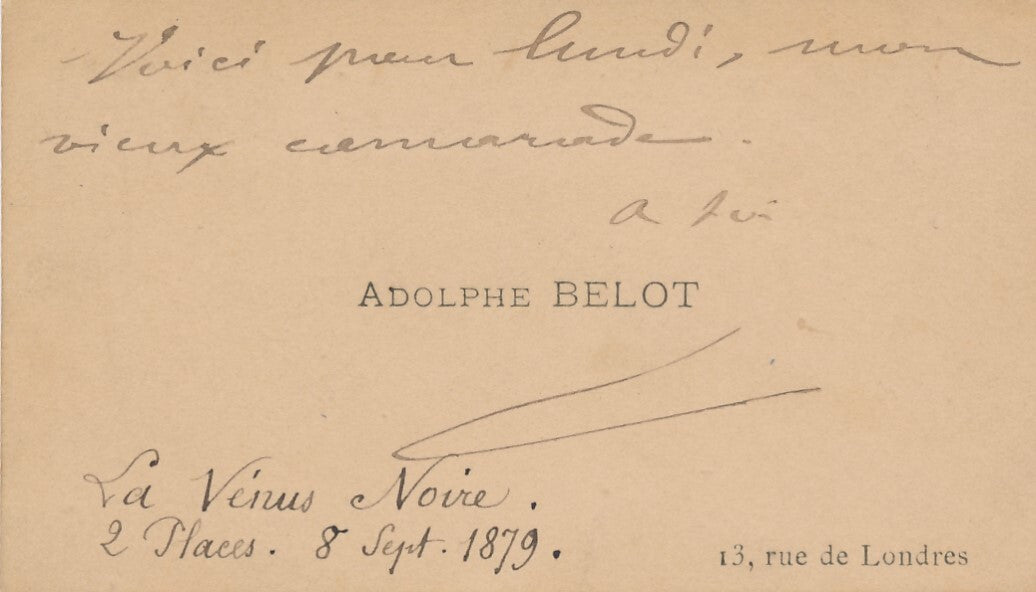 Voici pour lundi, mon
vieux camarade.
a toi
ADOLPHE BELOT
La Vénus Noire.
2 Places. 8 Sept. 1879.
13, rue de Londres